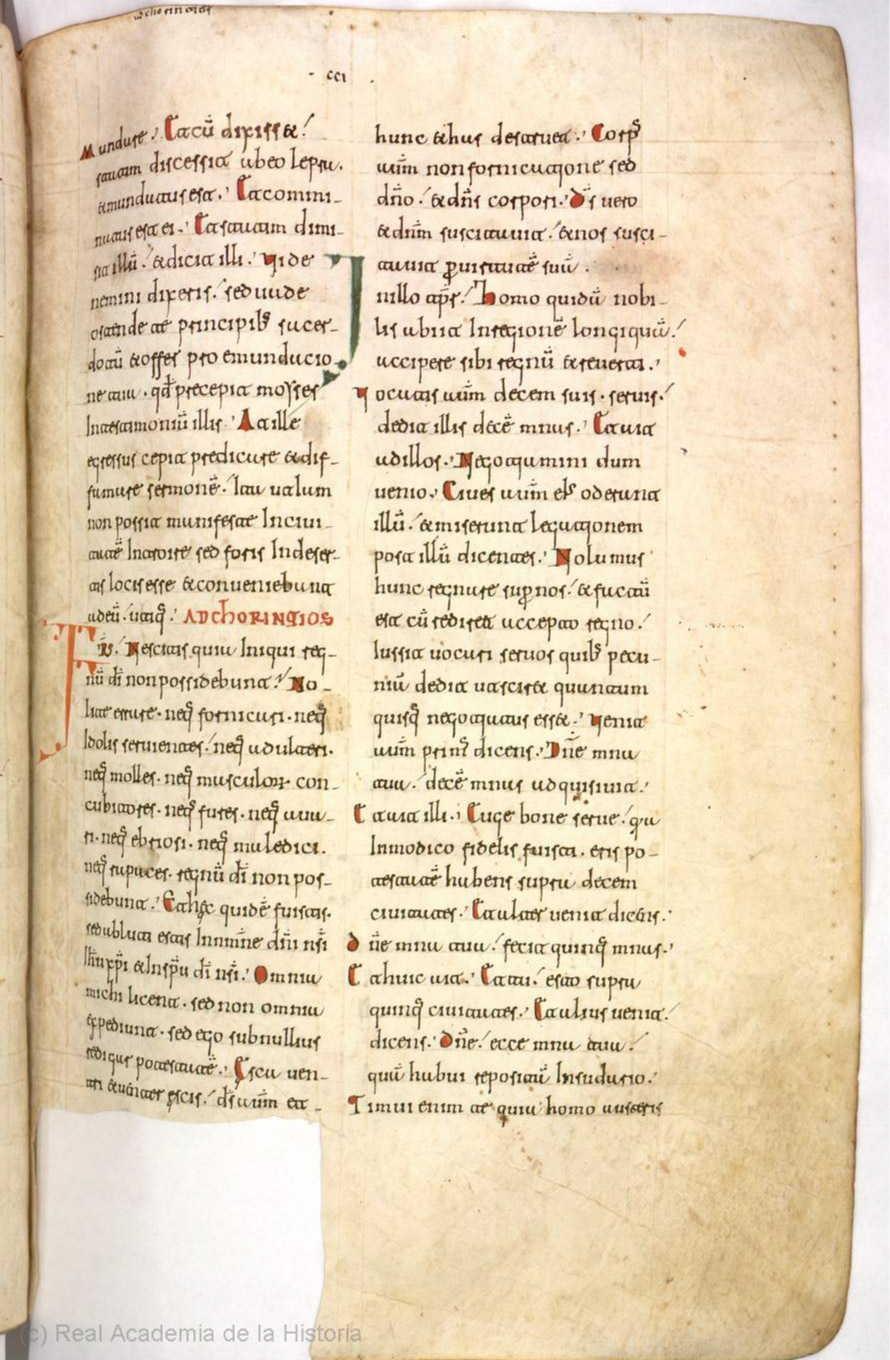 cci
Mundare. Et cũ dixisset
statim discessit ab eo lepra.
& mundatus est. Et comini-
natus est ei. Et statim dimi-
sit illũ. & dicit illi. Vide
nemini dixeris. sed uade
ostende te principib; sacer-
dotũ & offer pro emundatio-
ne tua. qđ precepit moyses
In testimoniũ illis. At ille
egressus cepit predicare & dif-
famare sermonẽ. Ita ut alum
non possit manifeste In ciui-
tatẽ Introire sed foris In deser-
tis locis esse & conueniebant
ad eũ. undiq;. AD CHORINTIOS
FR̃S. Nescitis quia Iniqui reg-
nũ dĩ non possidebunt. No-
lite errare. neq; fornicari. neq;
Idolis seruientes. neq; adulteri.
neq; molles. neq; masculorum con-
cubitores. neq; fures. neq; aua-
ri. neq; ebriosi. neq; maledici.
neq; rapaces. regnũ dĩ non pos-
sidebunt. Et hec quidẽ fuistis.
sed abluti estis In nm̃ne dñi nsĩ
ihũ xp̃i & In spũ dĩ nsĩ. Omnia
michi licent. sed non omnia
expediunt. sed ego sub nullius
redigar potestatẽ. Esca uen-
tri & uenter escis. ds̃ aum̃ et-
hunc & has destruet. Corp;
aum̃ non fornicatione sed
dño. & dñs corpori. Ds̃ uero
& dñm suscitauit. & nos susci-
tauit p uirtutẽ suã.
In illo tp̃r. Homo quidã nobi-
lis abiit In regionẽ longiquã.
accipere sibi regnũ & reuerti.
Vocatis aum̃ decem suis. seruis.
dedit illis decẽ mnas. Et ait
ad illos. Negotiamini dum
uenio. Ciues aum̃ eĩs oderunt
illũ. & miserunt legationem
post illũ dicentes. Nolumus
hunc regnare sup nos. & factũ
est cũ rediret accepto regno.
Iussit uocari seruos quib; pecu-
niã dedit ut sciret quantum
quisq; negotiatus esset. Venit
aum̃ prim; dicens. Dñe mna
tua. decẽ mnas adquisiuit.
Et ait illi. Euge bone serue. qia
In modico fidelis fuisti. eris po-
testatẽ habens supra decem
ciuitates. Et alter uenit dicẽs.
dñe mna tua. fecit quinq; mnas.
Et huic ait. Et tu. esto supra
quinq; ciuitates. Et alius uenit.
dicens. Dñe. ecce mna tua.
quã habui repositã In sudario.
Timui enim te quia homo austeris